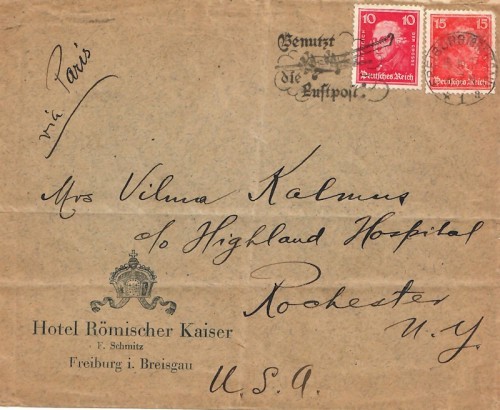 Benutzt
die
Luftpost.
10 10
Deutsches Reich
15 15
Deutsches Reich
via Paris
Mrs Vilma Kalmus
c/o Highland Hospital
Rochester
N.Y.
U.S.A.
Hotel Römischer Kaiser
F. Schmitz
Freiburg i. Breisgau